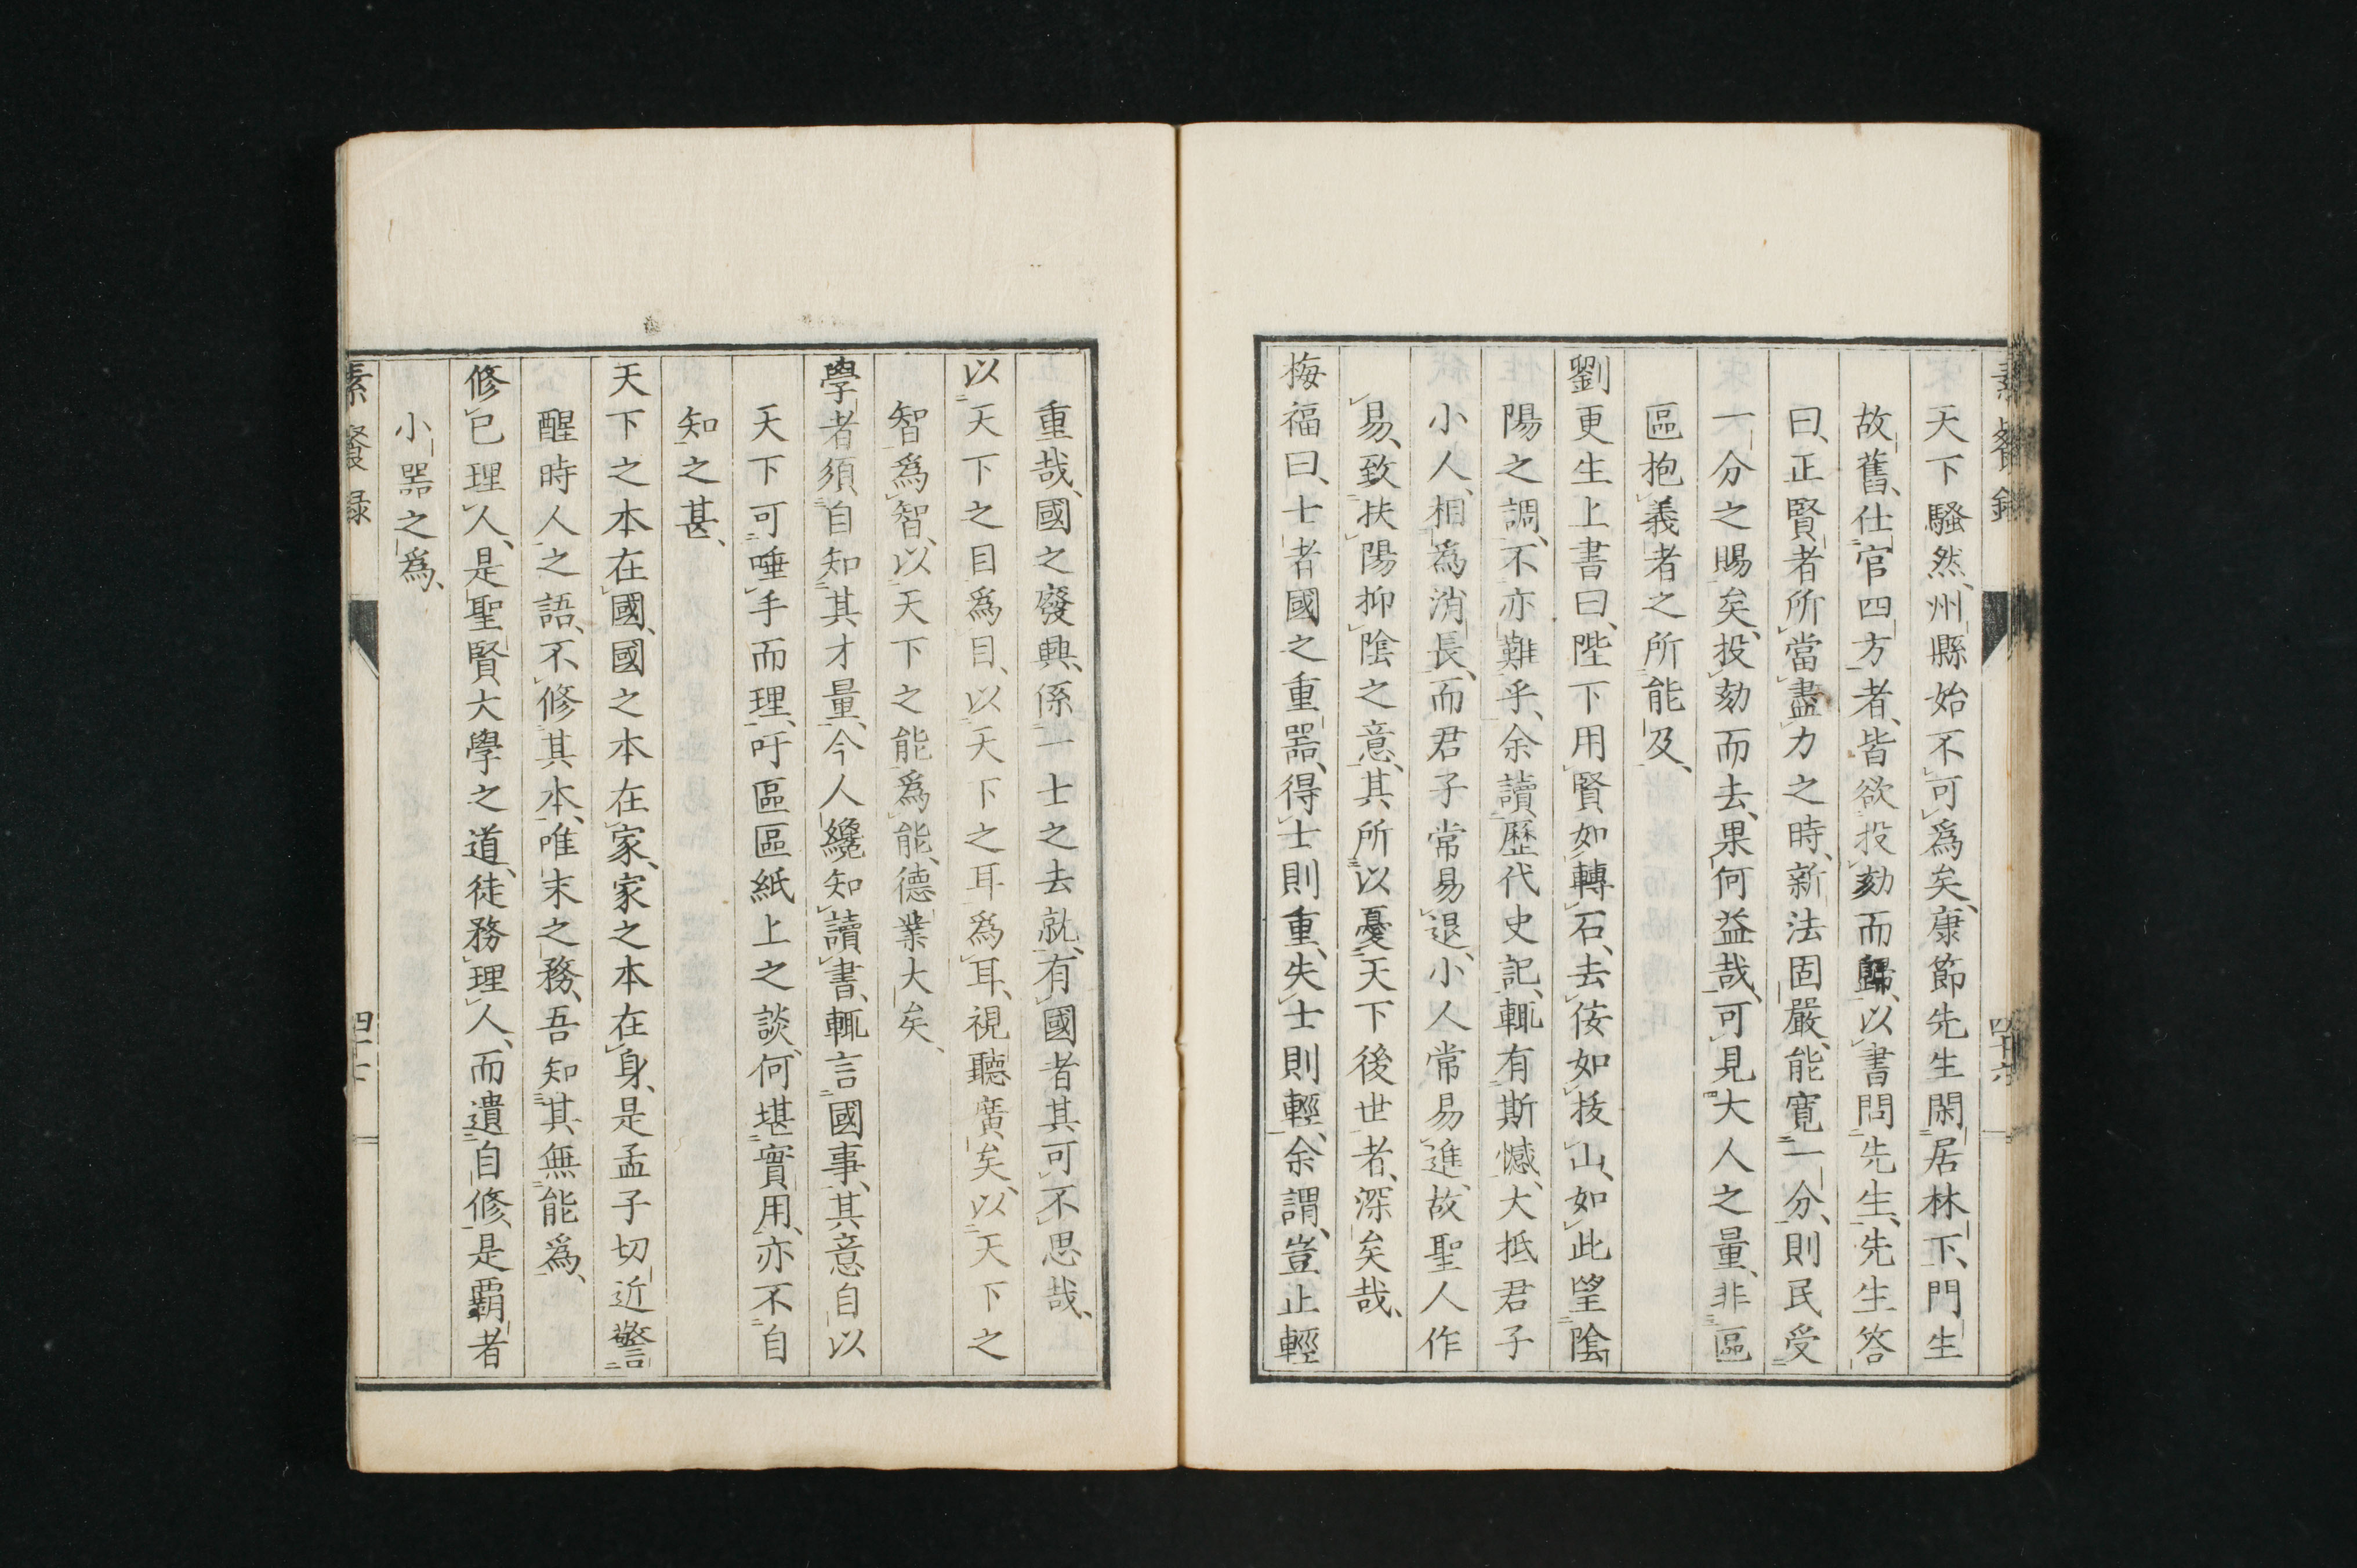 素餐錄
四十六
天下騷然、州縣始不可爲矣、康節先生閑居林下、門生
故舊、仕官四方者、皆欲投劾而歸、以書問先生、先生答
曰、正賢者所當盡力之時、新法固嚴、能寬一分、則民受
一分之賜矣、投劾而去、果何益哉、可見大人之量、非區
區抱義者之所能及、
劉更生上書曰、陛下用賢、如轉石、去佞如拔山、如此望陰
陽之調、不亦難乎、余讀歷代史記、輒有斯憾、大抵君子
小人、相爲消長、而君子常易退、小人常易進、故聖人作
易、致扶陽抑陰之意、其所以憂天下後世者、深矣哉、
梅福曰、士者國之重器、得士則重、失士則輕、余謂、豈止輕
重哉、國之廢興、係一士之去就、有國者其可不思哉、
以天下之目爲目、以天下之耳爲耳、視聽廣矣、以天下之
智爲智、以天下之能爲能、德業大矣、
學者須自知其才量、今人纔知讀書、輒言國事、其意自以
天下可唾手而理、吁區區紙上之談、何堪實用、亦不自
知之甚、
天下之本在國、國之本在家、家之本在身、是孟子切近警
醒時人之語、不修其本、唯末之務、吾知其無能爲、
修己理人、是聖賢大學之道、徒務理人、而遺自修、是霸者
小器之爲、
素餐錄
四十七